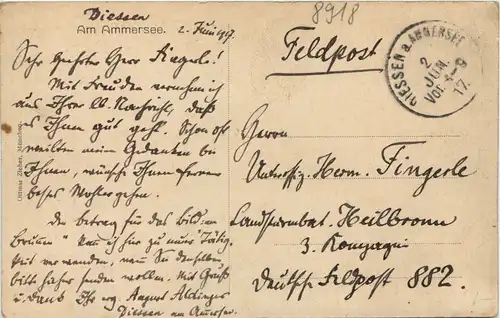 8918
Diessen
Am Ammersee. 2. Juni 1917.
Sehr geehrter Herr Fingerle!
Mit Freuden vernehm ich
aus Ihrer lb. Nachricht, daß
es Ihnen gut geht. Schon oft
weilten mein Gedanken bei
Ihnen, wünsche Ihnen ferner
bestes Wohlergehen.
Den betrag für das Bild
kann ich hier zu
verwenden, wenn Sie denselben
bitte hieher senden wollen. Mit Gruß
u. Dank Ihr erg. August Aldinger
Diessen am Ammersee.
Ottmar Zieher, München.
Feldpost
DIESSEN a. AMMERSEE
2
JUN.
Vor. 8-9
17.
Herrn
Unteroffiz. Herm. Fingerle
Landsturmbat. Heilbronn
3. Kompagnie
Deutsche Feldpost 882.